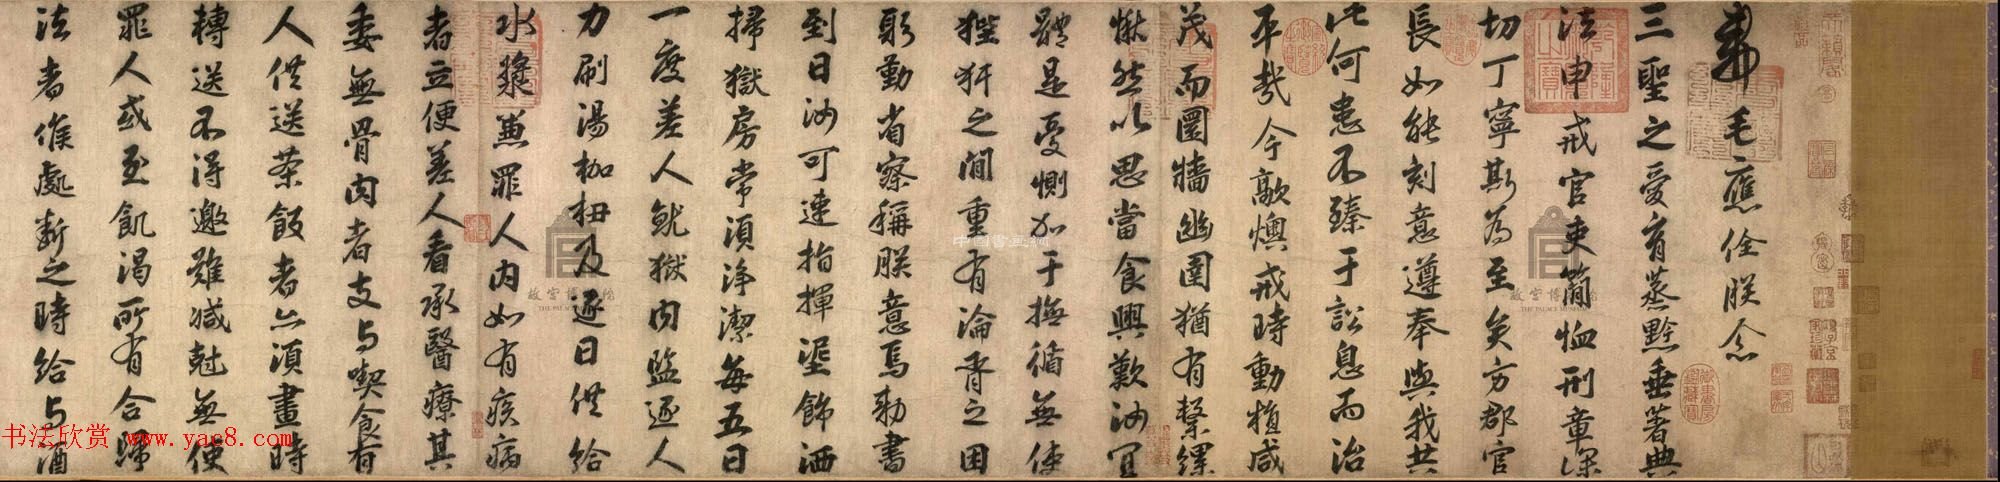 敕毛應佺朕念
三聖之愛育蒸黔垂著典
法申戒官吏簡恤刑章深
切丁寧斯為至矣方郡官
長如能刻意遵奉與我共
此何患不臻于訟息而治
平哉今歊燠戒時動植咸
茂而圜牆幽圄猶有繫縲
愀然以思當食興歎汝宜
體是憂惻加于撫循無使
狴犴之間重有淪胥之困
躬勤省察稱朕意焉勅書
到日汝可速指揮渥飾洒
掃獄房常須淨潔每五日
一度差人就獄內監逐人
力刷湯枷杻及逐日供給
水漿兼罪人內如有疾病
者立便差人看承醫療其
委無骨肉者支与喫食有
人供送茶飯者亦須畫時
轉送不得邀難減尅無使
罪人或至飢渴所有合歸
法者候處斷之時給与酒
中国書画網
故宫博物院
THE PALACE MUSEUM
故宫博物院
THE PALACE MUSEUM
书法欣赏 www.yac8.com